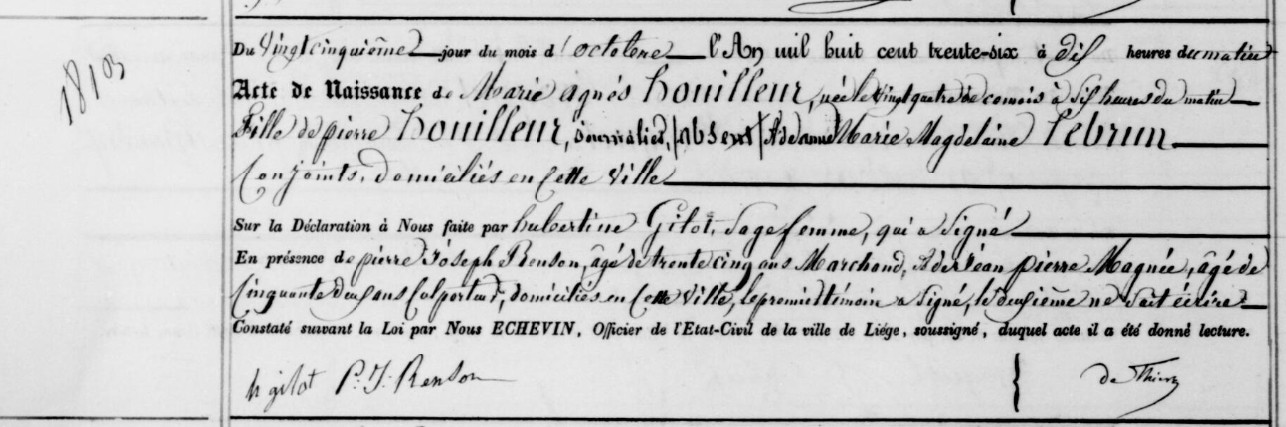 Du Vingt cinquième jour du mois d'octobre l'An mil huit cent trente-six à dix heures du matin
Acte de Naissance de Marie agnés houilleur, née le vingt quatre de ce mois a dix heures du matin
Fille de pierre houilleur, Journalier, /absent/ & de Marie Magdelaine Lebrun
Conjoints, domiciliés en Cette Ville
Sur la Déclaration à Nous faite par hubertine Gilot, Sage femme, qui a Signé
En présence de pierre Joseph Renson, âgé de trente cinq ans Marchand, & de Jean pierre Magnée, âgé de
Cinquante deux ans Colporteur, domiciliés en Cette Ville, le premier témoin a Signé, le deuxième ne sait écrire
Constaté suivant la Loi par Nous ECHEVIN, Officier de l'Etat-Civil de la ville de Liége, soussigné, duquel acte il a été donné lecture.
h gilot P. J. Renson